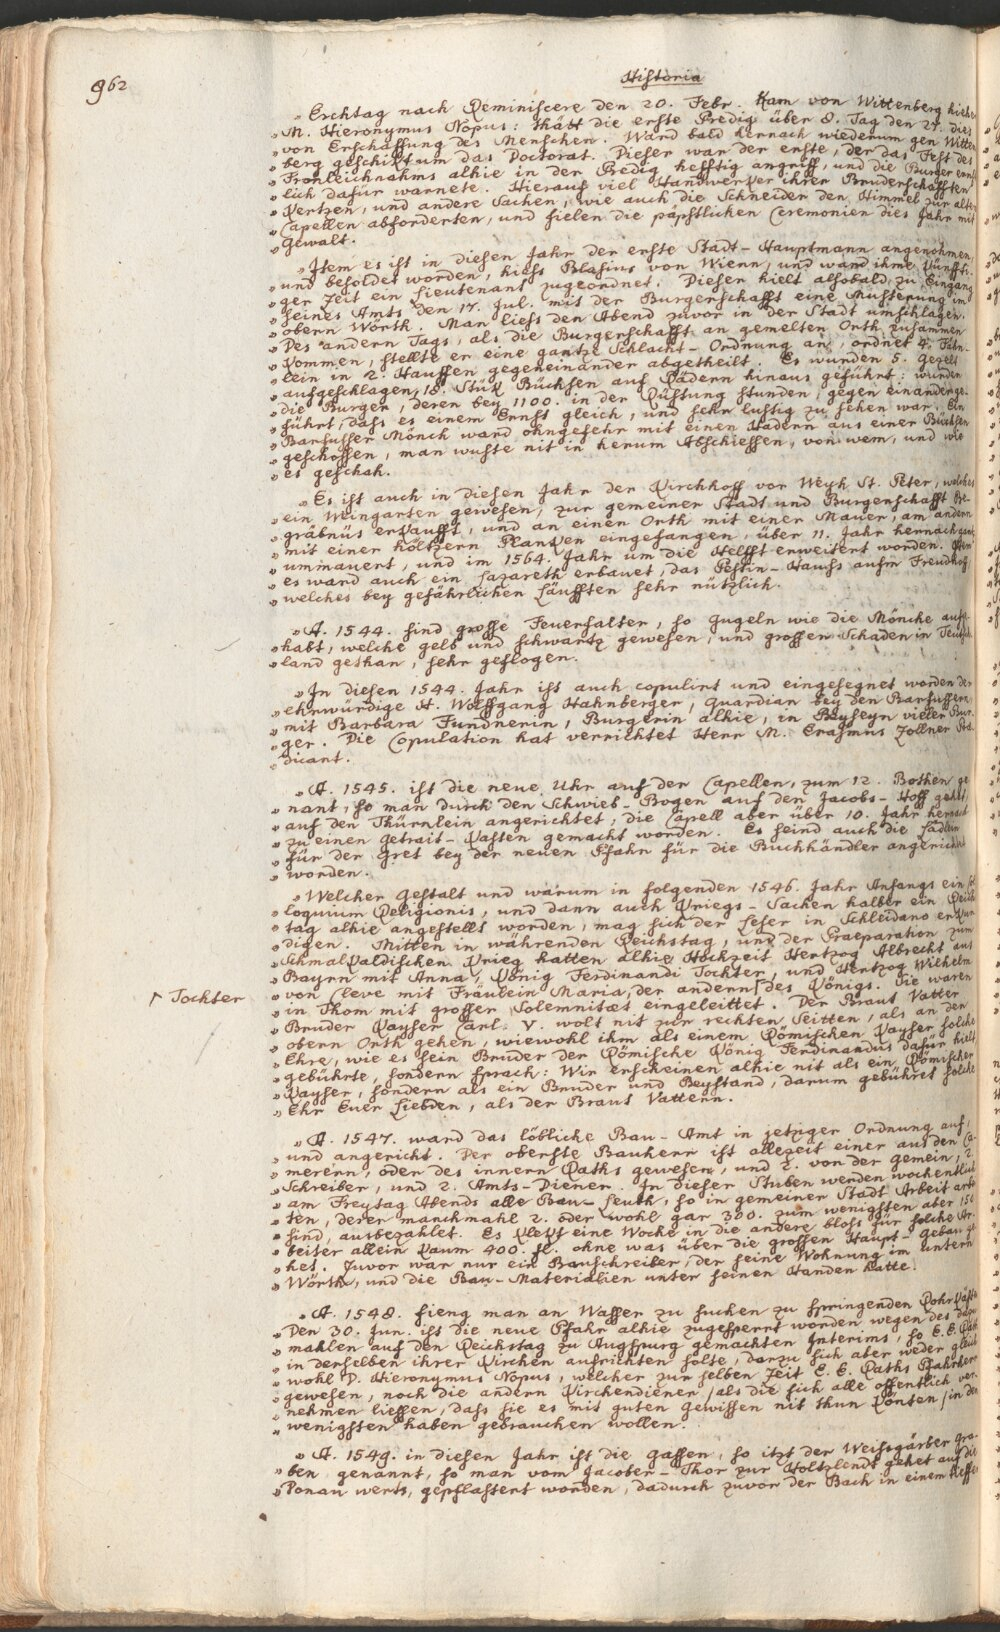 962
Historia
„ Erchtag nach Reminiscere den 20. Febr. Kam von Wittenberg hieher
„ M. Hieronymus Nopus: thätt die erste Predig über 8. Tag den 27. dies
„ von Erschaffung des Menschen. Ward bald hernach wiederum gen Witten
„ berg geschikt um das Doctorat. Dieser war der erste, der das Fest des
„ Fronleichnahms alhie in der Predig hefftig angriff, und die Burger ernst
„ lich dafür warnete. Hierauf viel Handwerker ihrer Bruderschafften
„ Kertzen, und andere Sachen, wie auch die Schneider den Himmel zur alten
„ Capellen abforderten, und fielen die päpstlichen Ceremonien dies Jahr mit
„ Gewalt.
„ Item es ist in diesen Jahr der erste Stadt-Hauptmann angenohmen,
„ und besoldet worden, hiess Blasius von Wienn, und ward ihme künffti-
„ ger Zeit ein Lieutenant zugeordnet. Dieser hielt alsobald zu Eingang
„ seines Amts den 17. Jul. mit der Burgerschafft eine Musterung im
„ obern Wörth. Man liess den Abend zuvor in der Stadt umschlagen.
„ Des andern Tags, als die Burgerschafft an gemelten Orth zusammen
„ kommen, stellte er eine gantze Schlacht-Ordnung an, ordnet 4. Fän-
„ lein in 2. Hauffen gegeneinander abgetheilt. Es wurden 5. Gezelt
„ aufgeschlagen, 18. Stük Büchsen auf Rädern hinaus geführt: wurden
„ die Burger, deren bey 1100. in der Rüstung stunden, gegen einander ge-
„ führt, dass es einem Ernst gleich, und sehr lustig zu sehen war. Ein
„ Barfusser Mönch ward ohngefehr mit einen Hadern aus einer Büchsen
„ geschossen, man wuste nit in herum Abschiessen, von wem, und wie
„ es geschah.
„ Es ist auch in diesen Jahr der Kirchhoff vor Weyh St. Peter, welches
„ ein Weingarten gewesen, zur gemeiner Stadt und Burgerschafft Be-
„ gräbnüs erkaufft, und an einen Orth mit einer Mauer, am andern
„ mit einer höltzern Planken eingefangen, über 11. Jahr hernach gantz
„ ummauert, und im 1564. Jahr um die Helfft erweitert worden.
„ es ward auch ein Lazareth erbauet, das Pestin-Hauss aufm Freudhof
„ welches bey gefährlichen Läufften sehr nützlich.
„ A. 1544. sind grosse Feuerfalter, so Gugeln wie die Mönche aufge-
„ habt, welche gelb und schwartz gewesen, und grossen Schaden in Teutsch-
„ land gethan, sehr geflogen.
„ In diesen 1544. Jahr ist auch copulirt und eingesegnet worden der
„ ehrwürdige H. Wolffgang Hahnberger, Guardian bey den Barfussern
„ mit Barbara Fundnerin, Burgerin alhie, in Beyseyn vieler Bur-
„ ger. Die Copulation hat verrichtet Herr M. Erasmus Zollner Prä-
„ dicant.
„ A. 1545. ist die neue Uhr auf der Capellen, zum 12. Bothen ge
„ nant, so man durch den Schwieb-Bogen auf den Jacobs-Hoff gehet,
„ auf den Thürnlein angerichtet, die Capell aber über 10. Jahr hernach
„ zu einen Getrait-Kasten gemacht worden. Es seind auch die Lädlen
„ für der Gret bey der neuen Pfahr für die Buchhändler angericht
„ worden.
„ Welcher Gestalt und warum in folgenden 1546. Jahr Anfangs ein Col
„ loquium Religionis, und dann auch Kriegs-Sachen halber ein Reichs
„ tag alhie angestellt worden, mag sich der Leser in Schleidano erkun
„ digen. Mitten in währenden Reichstag, und der Praeparation zum
„ Schmalkaldischen Krieg hatten alhie Hochzeit Hertzog Albrecht aus
„ Bayrn mit Anna, König Ferdinandi Tochter, und Hertzog Wilhelm
„ von Cleve mit Fräulein Maria, der andern ┌ des Königs. Sie waren
┌ Tochter
„ in Thom mit grosser Solemnitæt eingeleittet. Der Braut Vatter
„ Bruder Kayser Carl. V. wolt nit zur rechten Seitten, als an der
„ obern Orth gehen, wiewohl ihm als einem Römischen Kayser solche
„ Ehre, wie es sein Bruder der Römische König Ferdinandus dafür hielt
„ gebührte, sondern sprach: Wir erscheinen alhie nit als ein Römischer
„ Kayser, sondern als ein Bruder und Beystand, darum gebühret solche
„ Ehr Euer Liebden, als der Braut Vattern.
„ A. 1547. ward das löbliche Bau-Amt in jetziger Ordnung auf,
„ und angericht. Der oberste Bauherr ist allezeit einer aus den Ca-
„ merern, oder des innern Raths gewesen, und 2. von der Gemein, 2.
„ Schreiber, und 2. Amts-Diener. In dieser Stuben werden wochentlich
„ am Freytag Abends alle Bau-Leuth, so in gemeiner Stadt Arbeit arbei
„ ten, derer manchmahl 2. oder wohl gar 300. zum wenigsten aber 150
„ sind, ausbezahlet. Es klekt eine Woche in die andere bloss für solche Ar-
„ beiter allein kaum 400. fl. ohne was über die grossen Haupt-Gebäu ge
„ het. Zuvor war nur ein Bauschreiber, der seine Wohnung im untern
„ Wörth, und die Bau-Materialien unter seinen Handen hatte.
„ A. 1548. fieng man an Wasser zu suchen zu springenden Rohrkästen
„ Den 30. Jun. ist die neue Pfahr alhie zugesperrt worden wegen des dazu
„ mahlen auf den Reichstag zu Augspurg gemachten Interims, so E. E. Rath
„ in derselben ihrer Kirchen aufrichten solte, darzu sich aber weder gleich
„ wohl D. Hieronymus Nopus, welcher zur selben Zeit E. E. Raths Pfahrherr
„ gewesen, noch die andern Kirchendiener /als die sich alle offentlich ver-
„ nehmen liessen, dass sie es mit guten Gewissen nit thun konten / in den
„ wenigsten haben gebrauchen wollen.
„ A. 1549. in diesen Jahr ist die Gassen, so itzt der Weissgärber Gra-
„ ben genannt, so man vom Jacober-Thor zur Holtzlendt gehet auf die
„ Donau werts, gepflastert worden, dadurch zuvor der Bach in einem tieffen